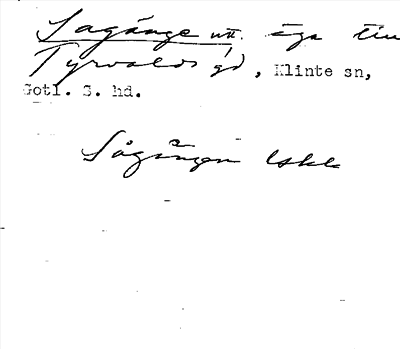 Sagänge utt. äga till
Tyrvalds gd, Klinte sn,
Gotl. S. hd.
Sågången